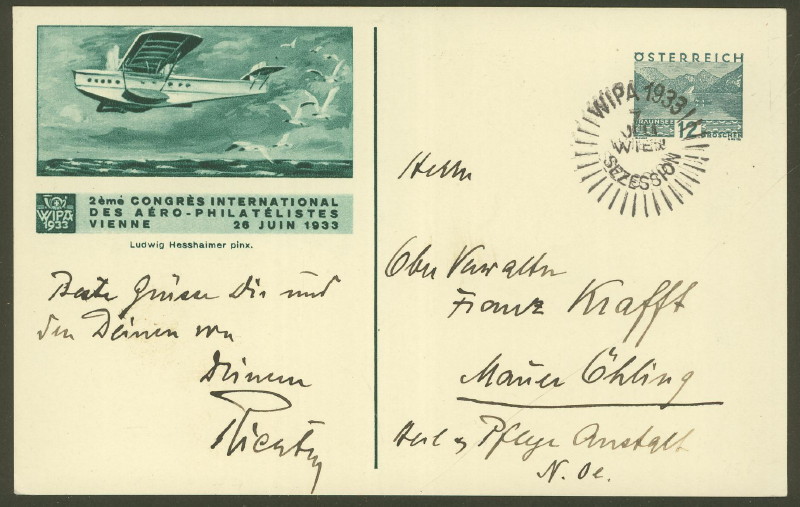 2èmé CONGRÈS INTERNATIONAL
DES AÉRO-PHILATÉLISTES
VIENNE 26 JUIN 1933
WIPA
1933
Ludwig Hesshaimer pinx.
Beste Grüsse Dir und
den Deinen von
Deinem
ÖSTERREICH
TRAUNSEE 12 GROSCHEN
WIPA 1933
WIEN
SEZESSION
Herrn
Ober Verwalter
Franz Krafft
Mauer Öhling
Heil u Pflege Anstalt
N. Oe.